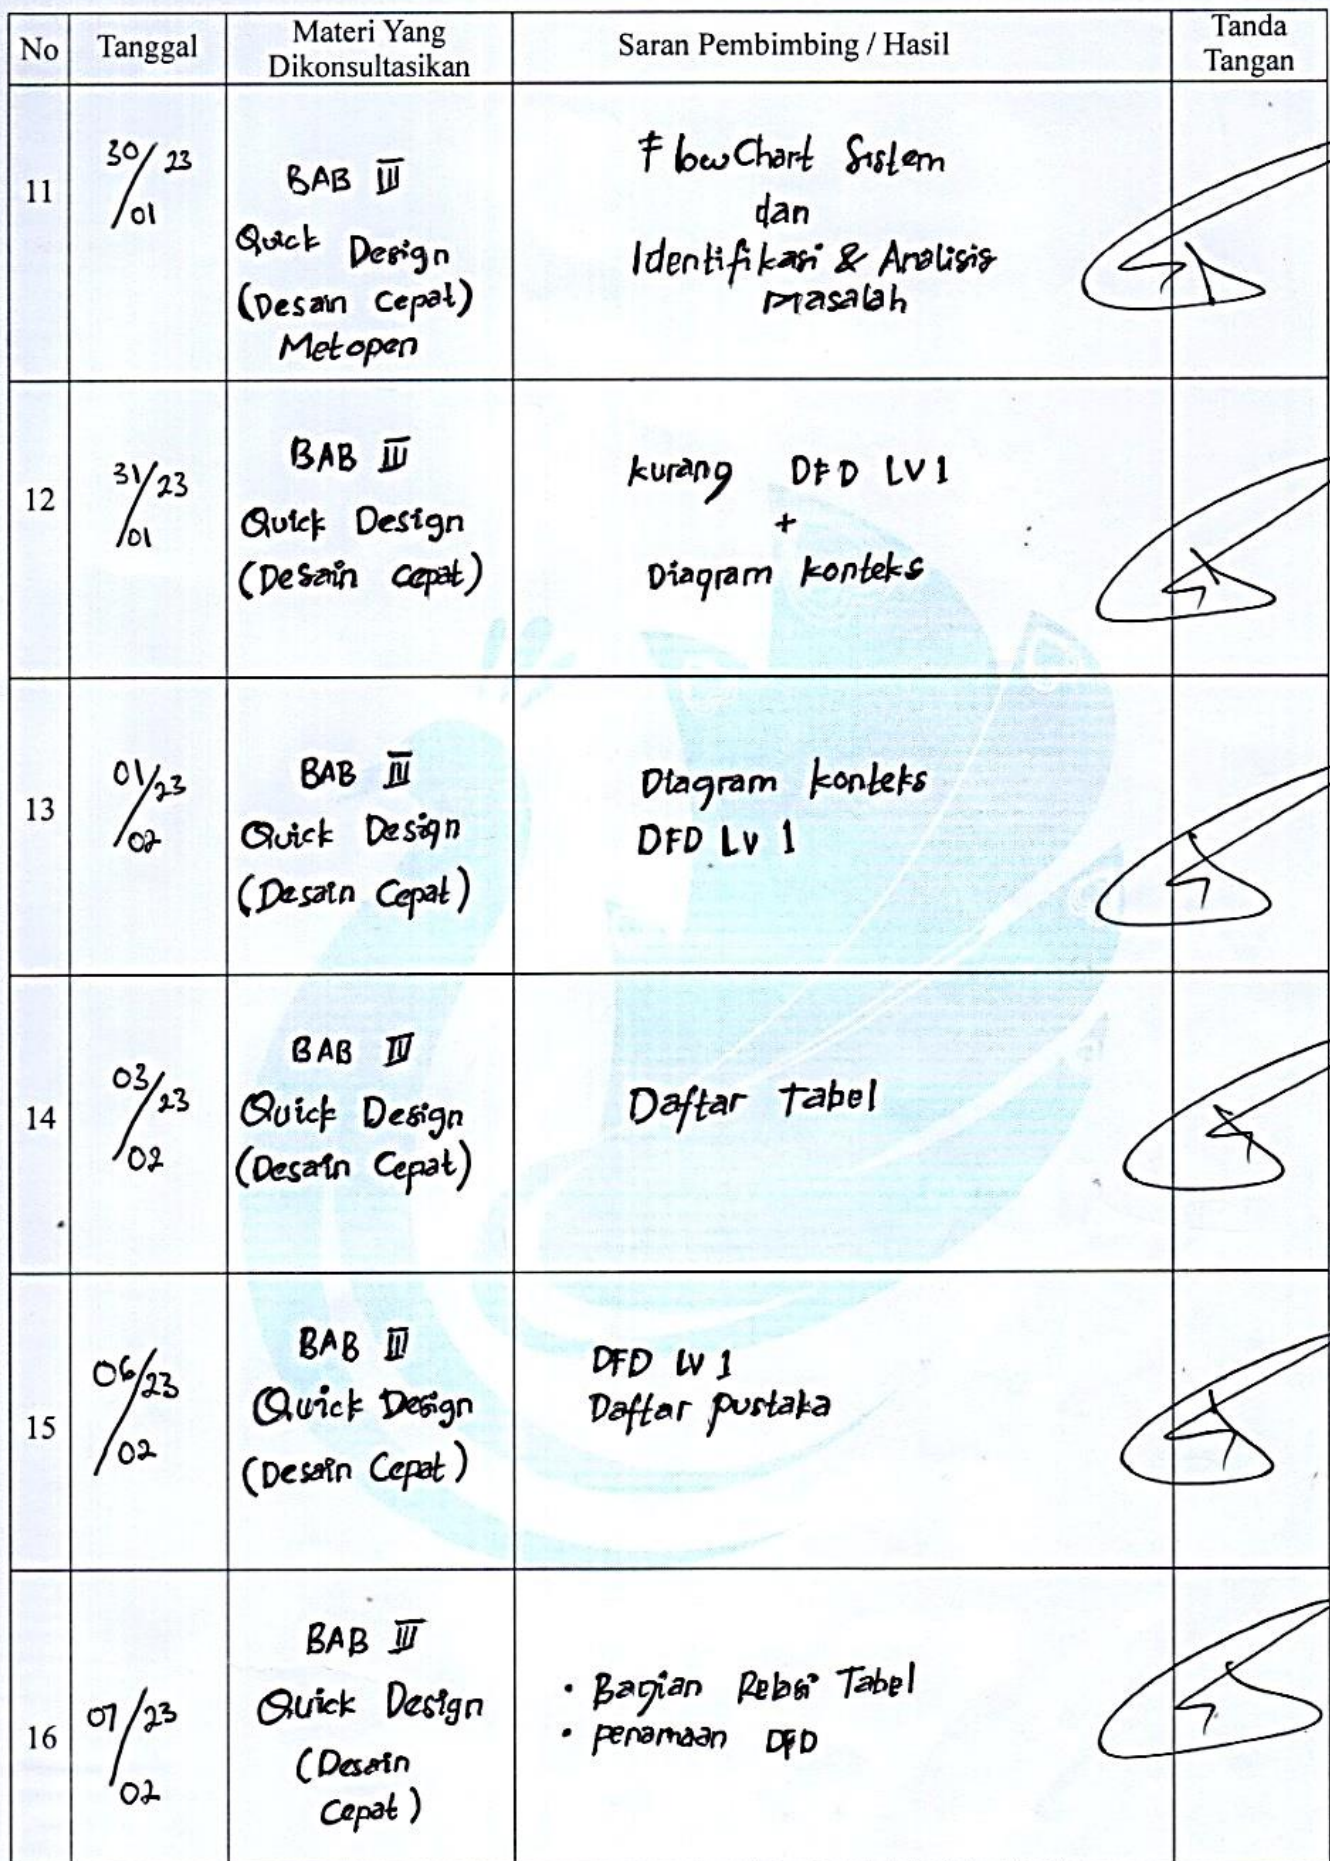 No Tanggal Materi Yang Dikonsultasikan Saran Pembimbing / Hasil Tanda Tangan
11
30/23
/01
BAB III
Quick Design
(Desain Cepat)
Metopen
Flow Chart Sistem
dan
Identifikasi & Analisis
Masalah
12
31/23
/01
BAB III
Quick Design
(Desain Cepat)
kurang DFD LV 1
+
Diagram konteks
13
01/23
/02
BAB III
Quick Design
(Desain Cepat)
Diagram konteks
DFD Lv 1
14
03/23
/02
BAB III
Quick Design
(Desain Cepat)
Daftar Tabel
15
06/23
/02
BAB III
Quick Design
(Desain Cepat)
DFD LV 1
Daftar pustaka
16
07/23
/02
BAB III
Quick Design
(Desain
Cepat)
• Bagian Relasi Tabel
• penamaan DFD